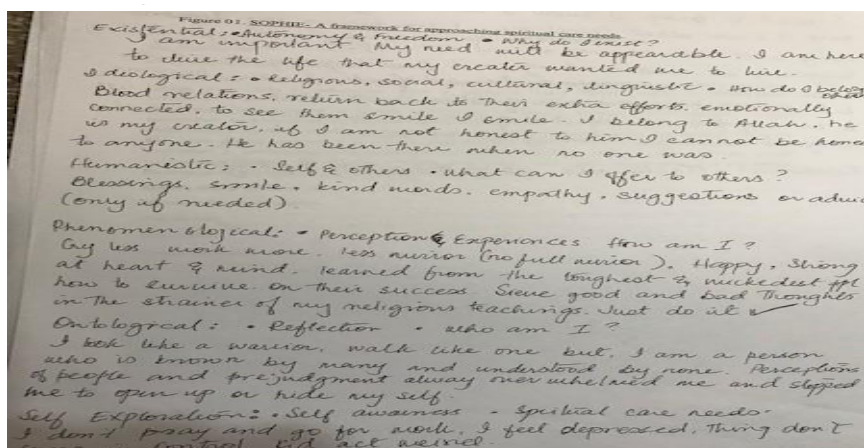 Figure 01. SOPHIE- A framework for approaching spiritual care needs
Existential: • Autonomy & Freedom • Why do I exist?
I am important My need will be appeardable. I am here
to live the life that my creater wanted me to live.
Ideological: • Religious, social, cultural, linguistic • How do I belong
Blood relations, return back to their extra efforts, emotionally
connected, to see them smile I smile. I belong to Allah. he
is my creator, if I am not honest to him I cannot be hone
to anyone. He has been there when no one was.
Humanistic: • Self & others • what can I offer to others?
Blessings, smile, kind words, empathy, suggestions or advic
(only if needed).
Phenomenological: • Perception & Experiences How am I?
Cry less work more. less mirror (no full mirror). Happy, Strong
at heart & mind. learned from the toughest & ppl
how to survive on their success. Sieve good and bad thoughts
in the strainer of my religious teachings. Just do it ✓
Ontological: • Reflection • who am I?
I look like a warrior, walk like one but, I am a person
who is known by many and understood by none. Perceptions
of people and prejudgment alway overwhelmed me and stopped
me to open up or hide my self.
Self Exploration: • Self awareness - Spiritual care needs.
I don't pray and go for work, I feel depressed, Thing don't
control, kid act weired.